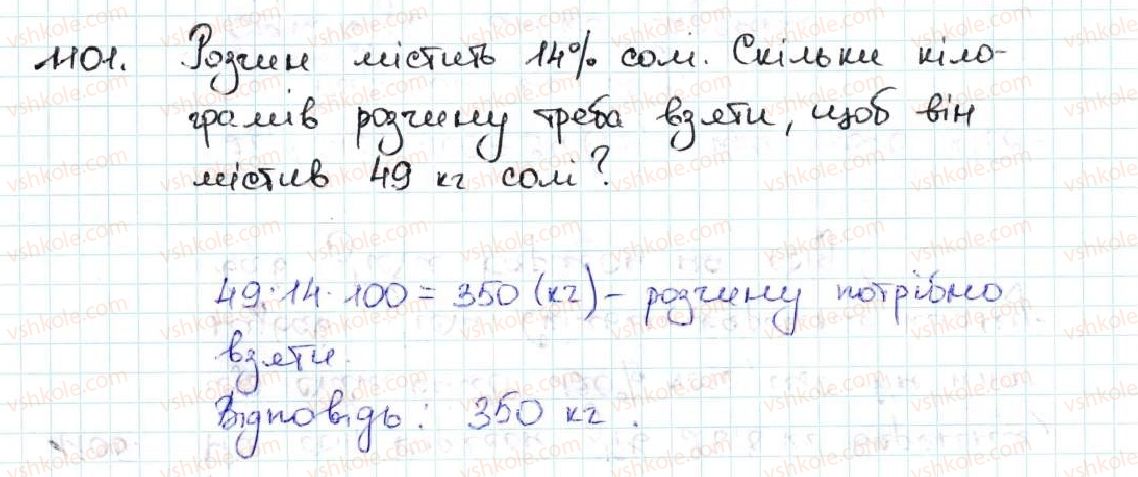 1101. Розчин містить 14% солі. Скільки кіло-
грамів розчину треба взяти, щоб він
містив 49 кг солі?
49 : 14 · 100 = 350 (кг) – розчину потрібно
взяти.
Відповідь: 350 кг.